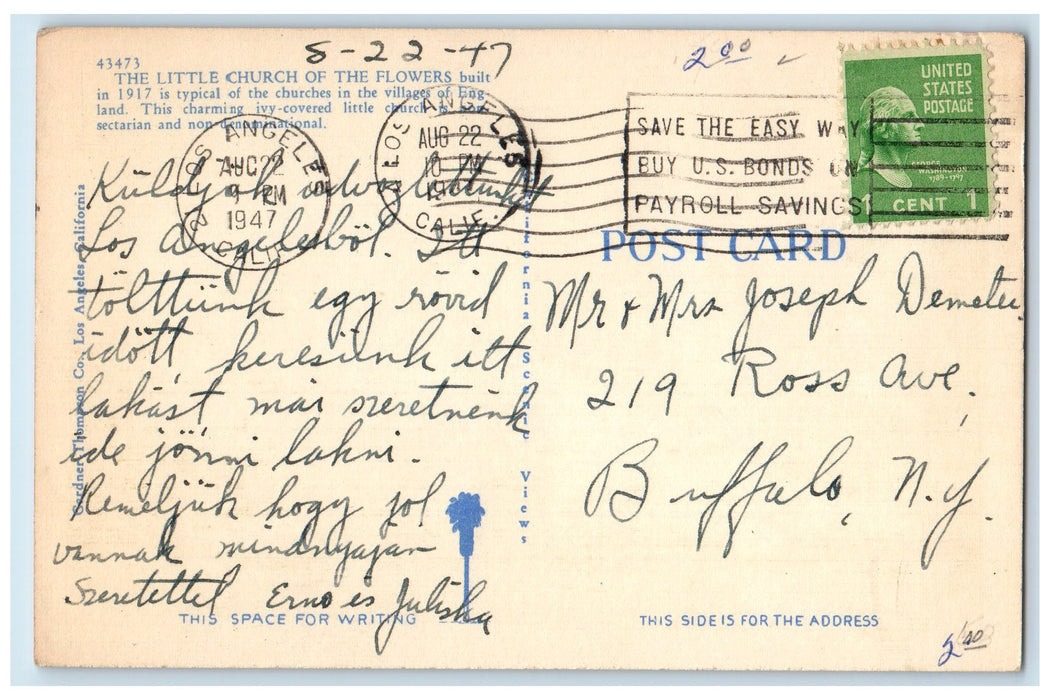 8-22-47
2⁰⁰
43473
THE LITTLE CHURCH OF THE FLOWERS built
in 1917 is typical of the churches in the villages of Eng-
land. This charming ivy-covered little church is non-
sectarian and non-denominational.
LOS ANGELES
AUG 22
9 PM
1947
CALIF.
LOS ANGELES
AUG 22
10 PM
CALIF.
SAVE THE EASY WAY
BUY U.S. BONDS ON
PAYROLL SAVINGS
UNITED
STATES
POSTAGE
GEORGE
WASHINGTON
1789-1797
CENT 1
Küldjük üdvözletünket
Los Angelesböl. Itt
tölttünk egy rövid
idött keresünk itt
lakást már szeretnénk
ide jönni lakni.
Remeljük hogy jol
vannak mindnyajan
Szeretettel Erno es Juliska
Gardner-Thompson Co., Los Angeles, California
California Scenic Views
POST CARD
Mr & Mrs Joseph Demeter
219 Ross Ave.
Buffalo, N.Y.
THIS SPACE FOR WRITING
THIS SIDE IS FOR THE ADDRESS